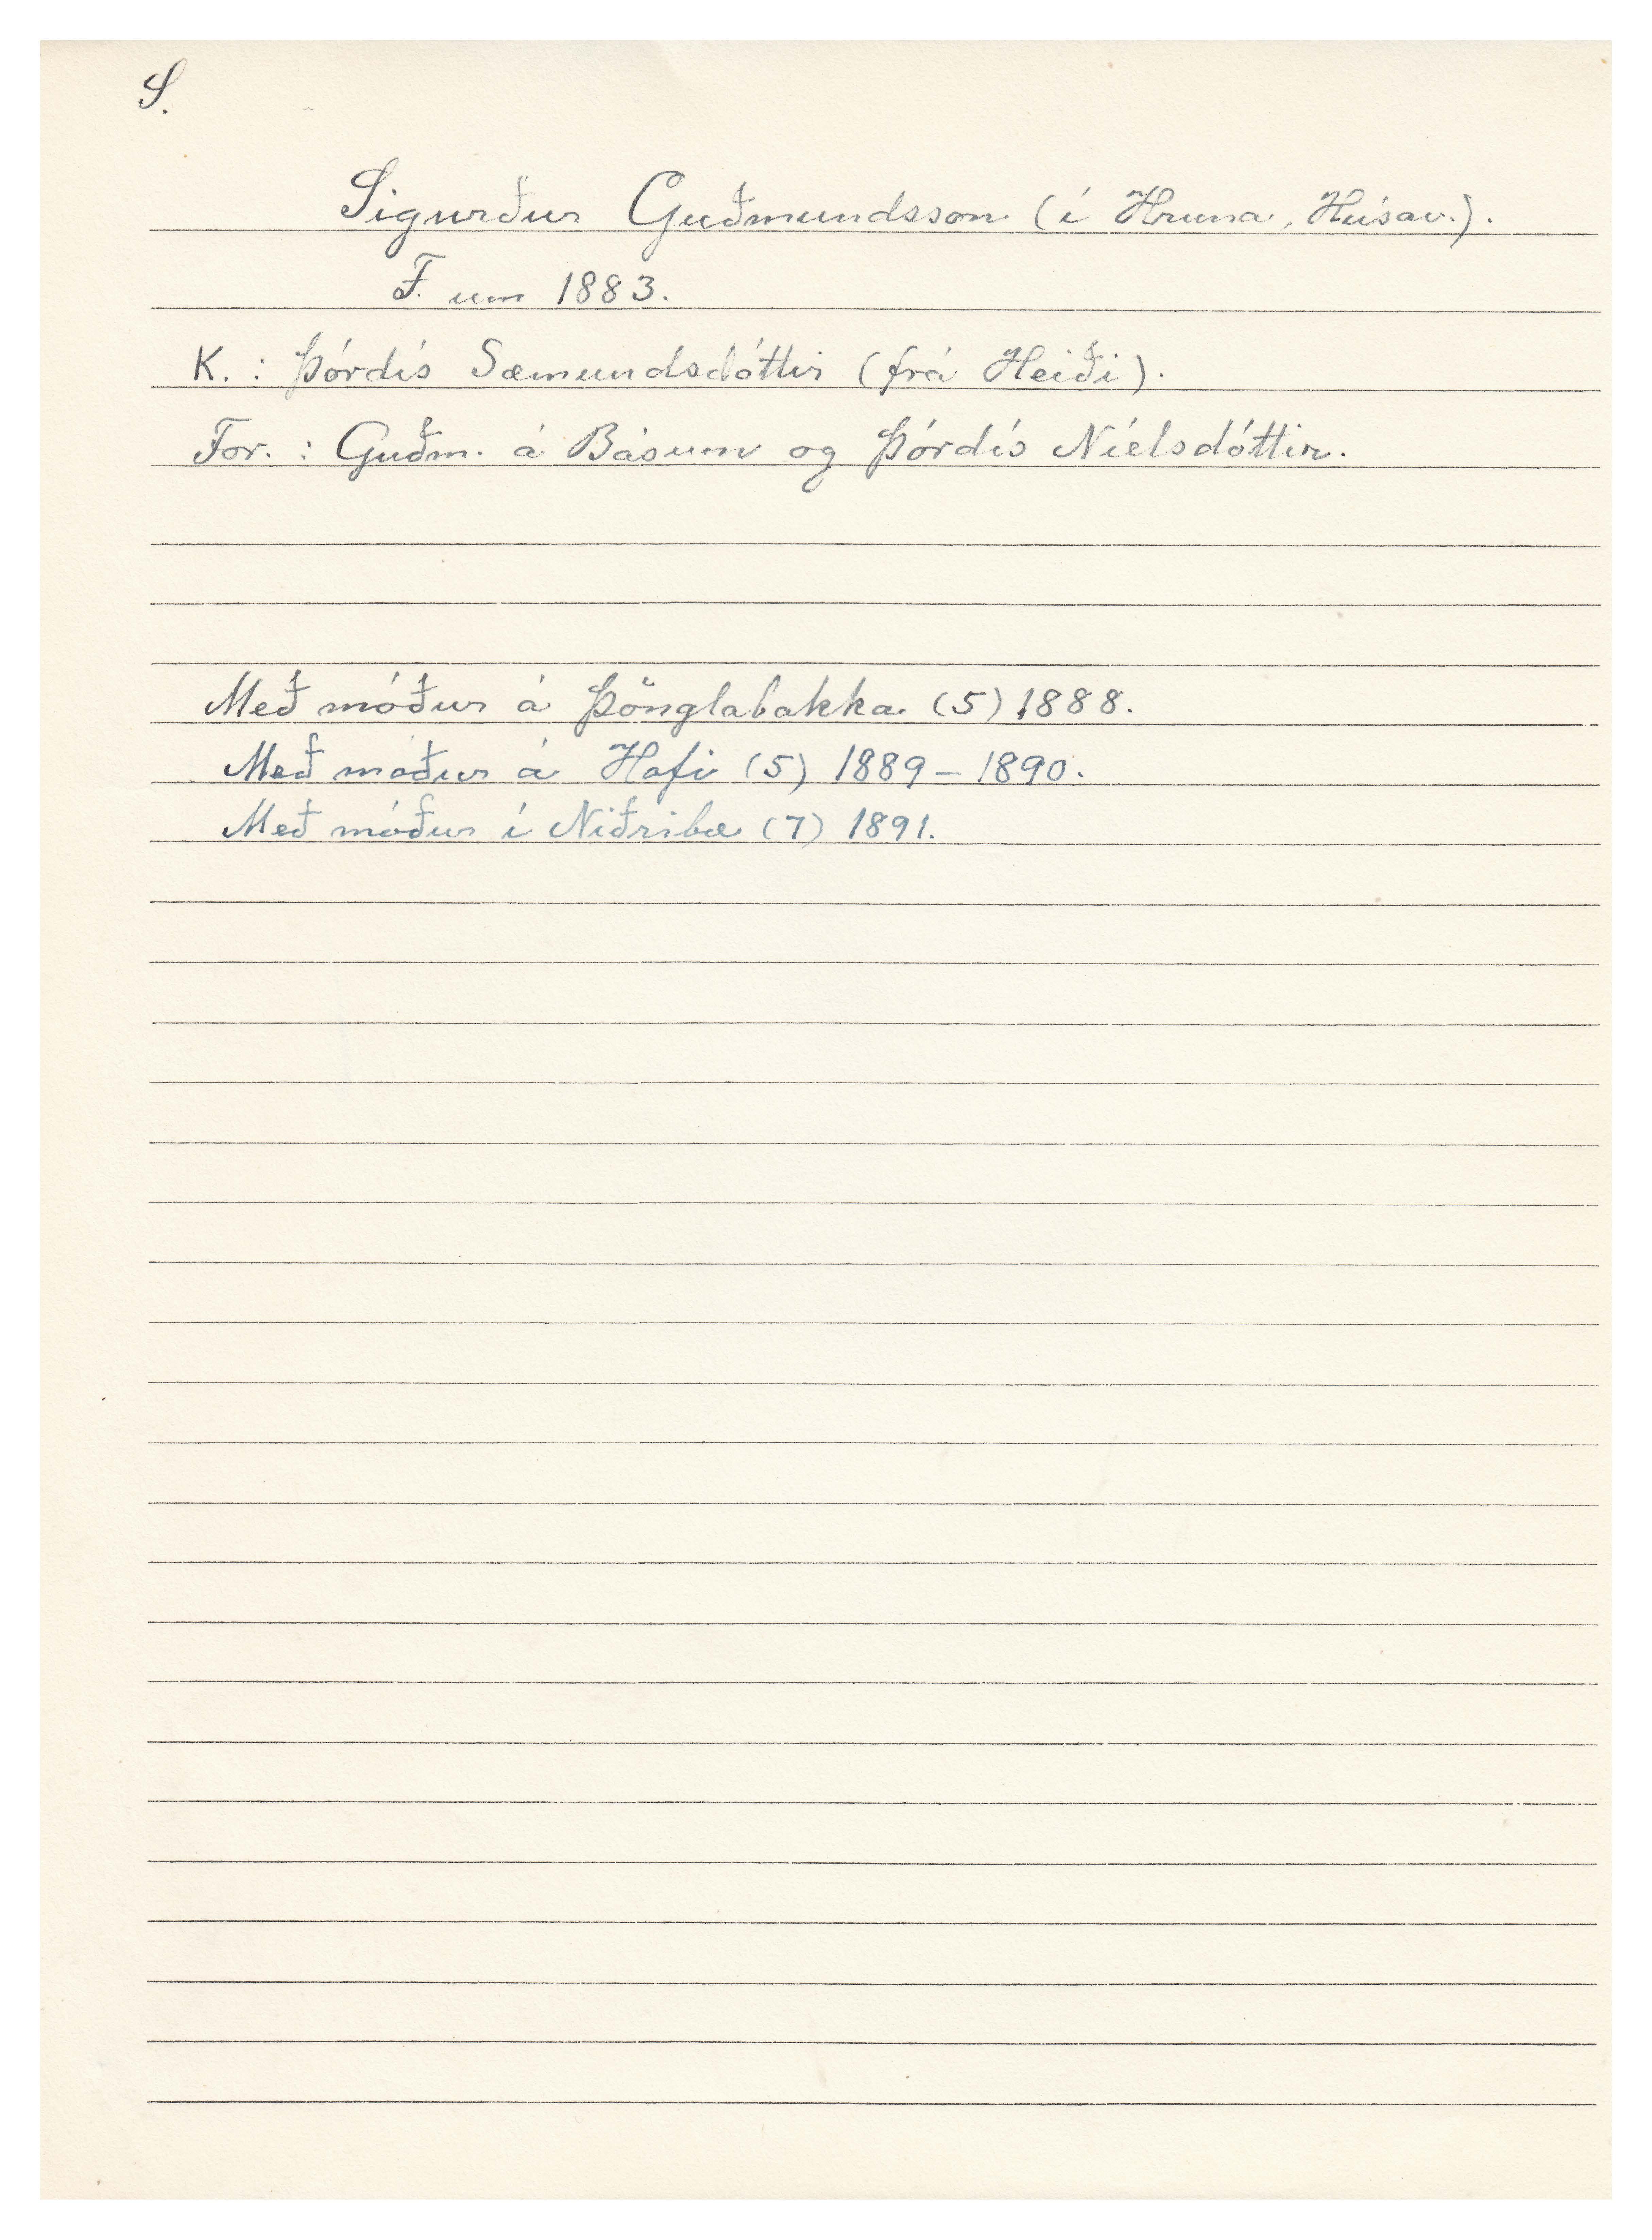 S.
Sigurður Guðmundsson (í Hruna, Húsav.).
F. um 1883.
K. : Þórdís Sæmundsdóttir (frá Heiði).
For. : Guðm. á Básum og Þórdís Níelsdóttir.
Með móður á Þönglabakka (5) 1888.
Með móður á Hofi (5) 1889 - 1890.
Með móður í Niðribæ (7) 1891.